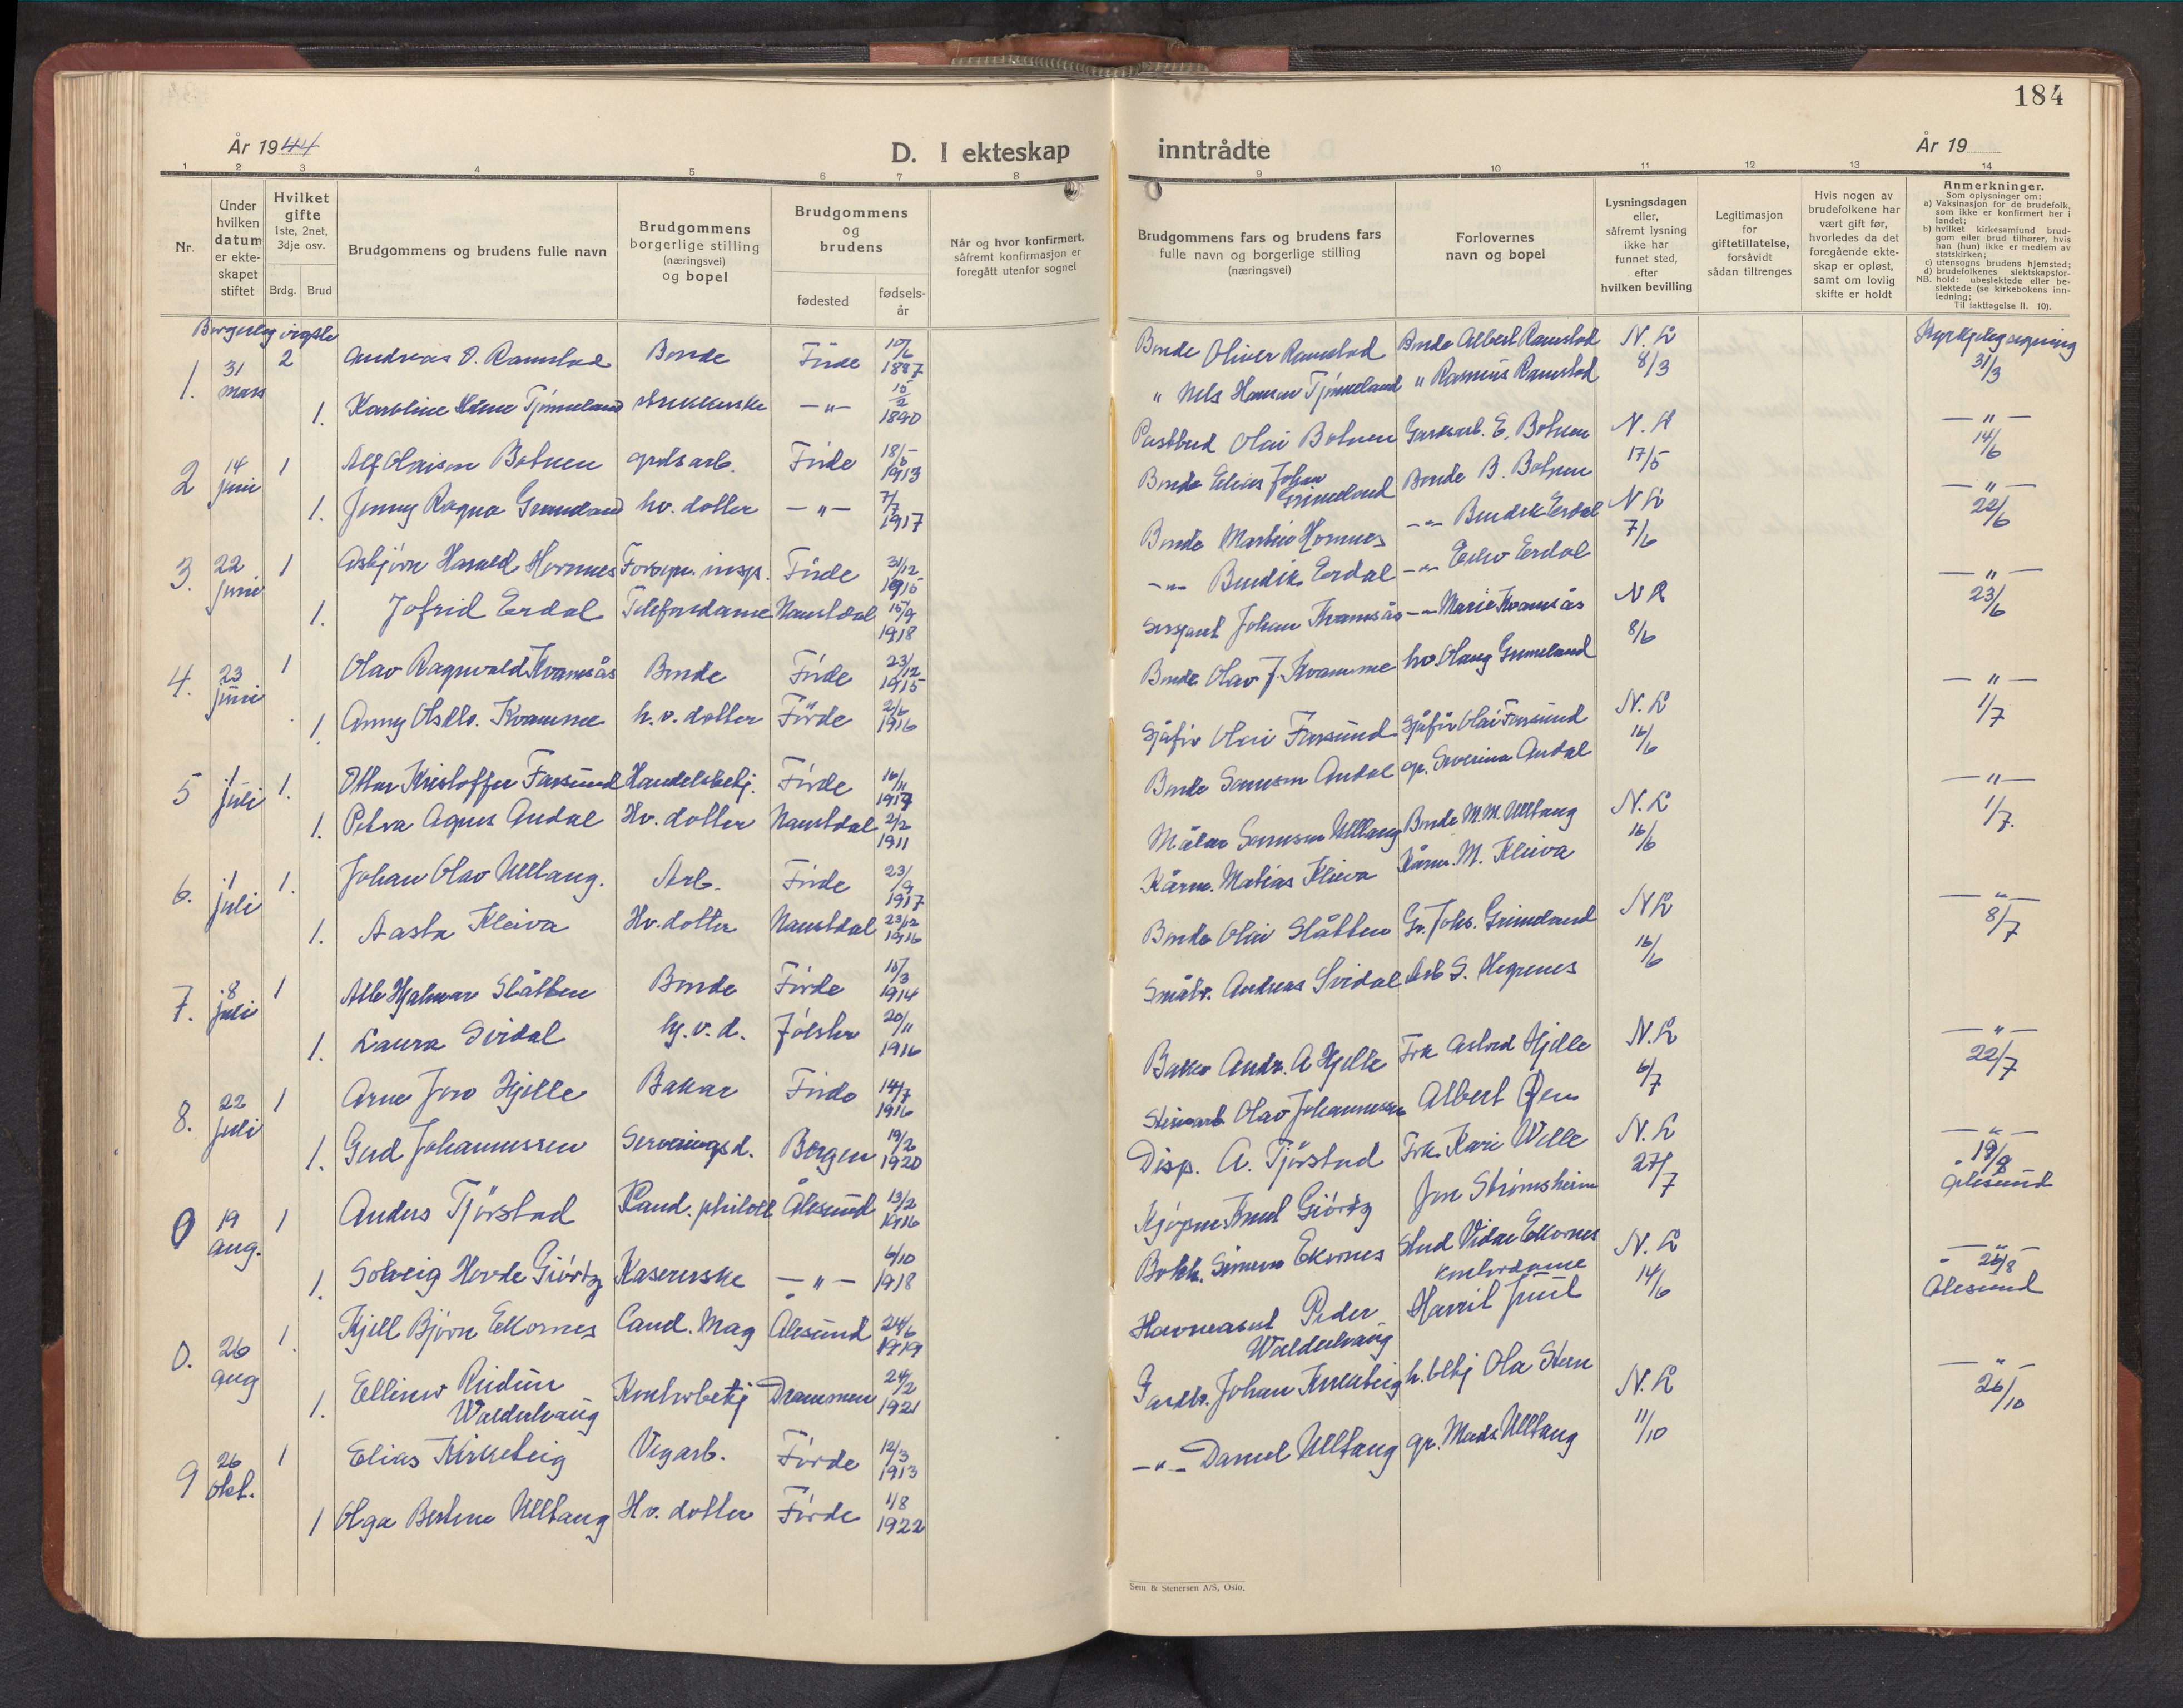 184
År 1944
D. I ekteskap
inntrådte
År 19
1 2 3 4 5 6 7 8
9 10 11 12 13 14
Nr.
Under
hvilken
datum
er ekte-
skapet
stiftet
Hvilket
gifte
1ste, 2net,
3dje osv.
Brdg. Brud
Brudgommens og brudens fulle navn
Brudgommens
borgerlige stilling
(næringsvei)
og bopel
Brudgommens
og
brudens
fødested
fødsels-
år
Når og hvor konfirmert,
såfremt konfirmasjon er
foregått utenfor sognet
Brudgommens fars og brudens fars
fulle navn og borgerlige stilling
(næringsvei)
Forlovernes
navn og bopel
Lysningsdagen
eller,
såfremt lysning
ikke har
funnet sted,
efter
hvilken bevilling
Legitimasjon
for
giftetillatelse,
forsåvidt
sådan tiltrenges
Hvis nogen av
brudefolkene har
vært gift før,
hvorledes da det
foregående ekte-
skap er opløst,
samt om lovlig
skifte er holdt
Anmerkninger.
Som oplysninger om:
a) Vaksinasjon for de brudefolk,
som ikke er konfirmert her i
landet;
b) hvilket kirkesamfund brud-
gom eller brud tilhører, hvis
han (hun) ikke er medlem av
statskirken;
c) utensogns brudens hjemsted;
d) brudefolkenes slektskapsfor-
NB. hold: ubeslektede eller be-
slektede (se kirkebokens inn-
ledning;
Til iakttagelse II. 10).
Borgerleg vigsle
1. 31 mars 2 Andreas O. Ramstad Bonde Förde 10/6 1887
1. Karoline Tjönneland — " — 15/2 1890
2 14 juni 1 Alf Olaison Botnen Förde 18/5 1913
1. Jenny Ragna Grimeland hv. dotter — " — 7/7 1917
3. 22 juni 1 Asbjörn Harald Hornnes Forsyn. insp. Förde 31/12 1915
1. Jofrid Erdal Telefondame Naustdal 15/9 1918
4. 23 juni 1 Olav Ragnvald Kvamsås Bonde Förde 23/12 1915
1. Anny Olsdtr. Kvamme h. v. dotter Förde 2/6 1916
5 1 juli 1. Ottar Kristoffer Farsund Handelsbetj. Förde 16/11 1917
1. Petra Agnes Andal Hv. dotter Naustdal 2/2 1911
6. 1 juli 1. Johan Olav Ulltang. Arb. Förde 23/9 1917
1. Aasta Kleiva Hv. dotter Naustdal 23/12 1916
7. 8 juli 1 Atle Hjalmar Slåtten Bonde Förde 15/3 1914
1. Laura Svidal h. v. d. Jölster 20/11 1916
8. 22 juli 1 Arne Jon Hjelle Bakar Förde 14/7 1916
1. Gerd Johannessen Serveringsd. Bergen 19/2 1920
9 19 aug. 1 Anders Tjörstad Ålesund 13/2 1916
1. Solveig Hovde Giörtz Kasererske — " — 6/10 1918
0. 26 aug 1. Kjell Björn Ekornes Cand. Mag Ålesund 24/6 1919
1. Ellinor Reidun
Walderhaug Kontorbetj Drammen 24/2 1921
9 26 okt. 1 Elias Kirketeig Vegarb. Förde 12/3 1913
1 Olga Bertine Ulltang Hv. dotter Förde 1/8 1922
Bonde Oliver Ramstad Bonde Albert Ramstad N. L 8/3 Kyrkjeleg signing 31/3
" Nils Hansen Tjönneland " Rasmus Ramstad
Postbud Olai Botnen Gardsarb. E. Botnen N. L 17/5 — " — 14/6
Bonde Elias Johan
Grimeland Bonde B. Botnen
Bonde Martin Hornnes — " — Bendik Erdal N L 7/6 — " — 22/6
— " — Bendik Erdal — " — Erdal
Sersjant Johan Kvamsås — " — Marie Kvamsås N L 8/6 — " — 23/6
Bonde Olav J. Kvamme Grimeland
Sjåför Olai Farsund Sjåför Olai Farsund N. L 16/6 — " — 1/7
Bonde Samson Andal gr. Severina Andal
Målar Samson Ulltang Bonde M. M. Ulltang N. L 16/6 — " — 1/7.
Kårm. Matias Kleiva Kårm. M. Kleiva
Bonde Olai Slåtten Gr. Johs. Grimeland N L 16/6 — " — 8/7
Småbr. Andreas Svidal Arb S. Hegrenes
Baker Andr. A Hjelle Frk Astrid Hjelle N. L 6/7 — " — 22/7
Steinarb. Olav Johannessen Albert
Disp. A. Tjörstad Frk. Kari Welle N. L 27/7 — " — 19/8 Ålesund
Kjöpm. Knut Giörtz Jon Strömsheim
Bokh. Simon Ekornes Stud Vidar Ekornes N. L 14/6 — " — 26/8 Ålesund
Havneassist Peder
Walderhaug kontordame
Juul
Gardbr. Johan Kirketeig h. betj Ola N. L 11/10 — " — 26/10
— " — Daniel Ulltang gr. Mads Ulltang
Sem & Stenersen A/S, Oslo.